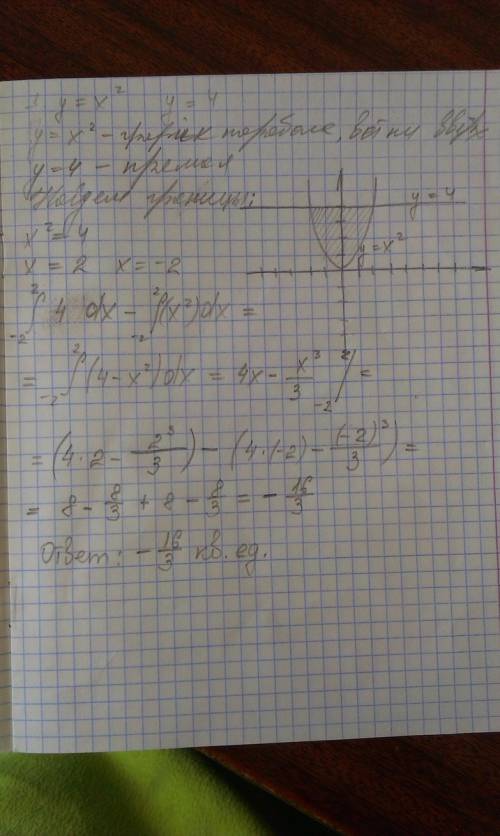 y = x² y = 4
y = x² – график парабола, ветви вверх
y = 4 – прямая
Найдем границы:
x² = 4
x = 2 x = -2
y = 4
y = x²
∫₋₂² 4 dx - ∫₋₂² (x²) dx =
= ∫₋₂² (4 - x²) dx = 4x - x³/3 |₋₂² =
= (4·2 - 2³/3) - (4·(-2) - (-2)³/3) =
= 8 - 8/3 + 8 - 8/3 = - 16/3
Ответ: - 16/3 кв. ед.